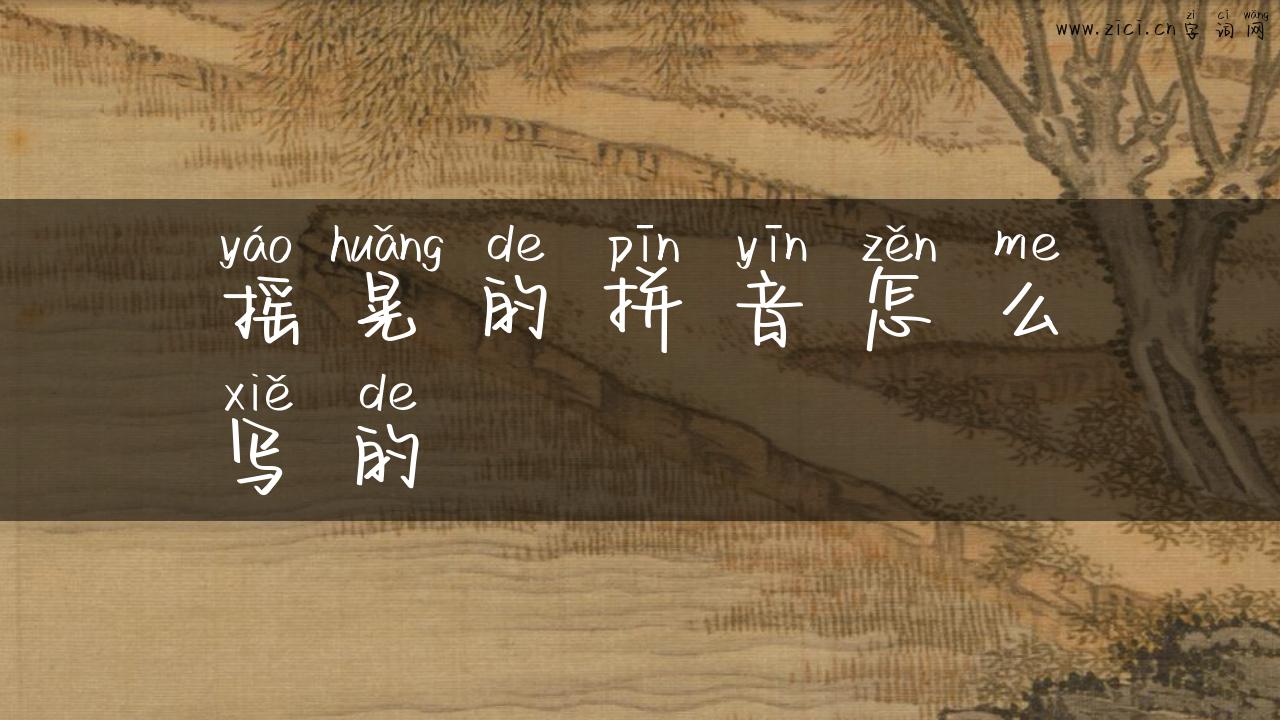 zì cí wǎng
www.zici.cn 字 词 网
yáo huǎng de pīn yīn zěn me
摇 晃 的 拼 音 怎 么
xiě de
写 的